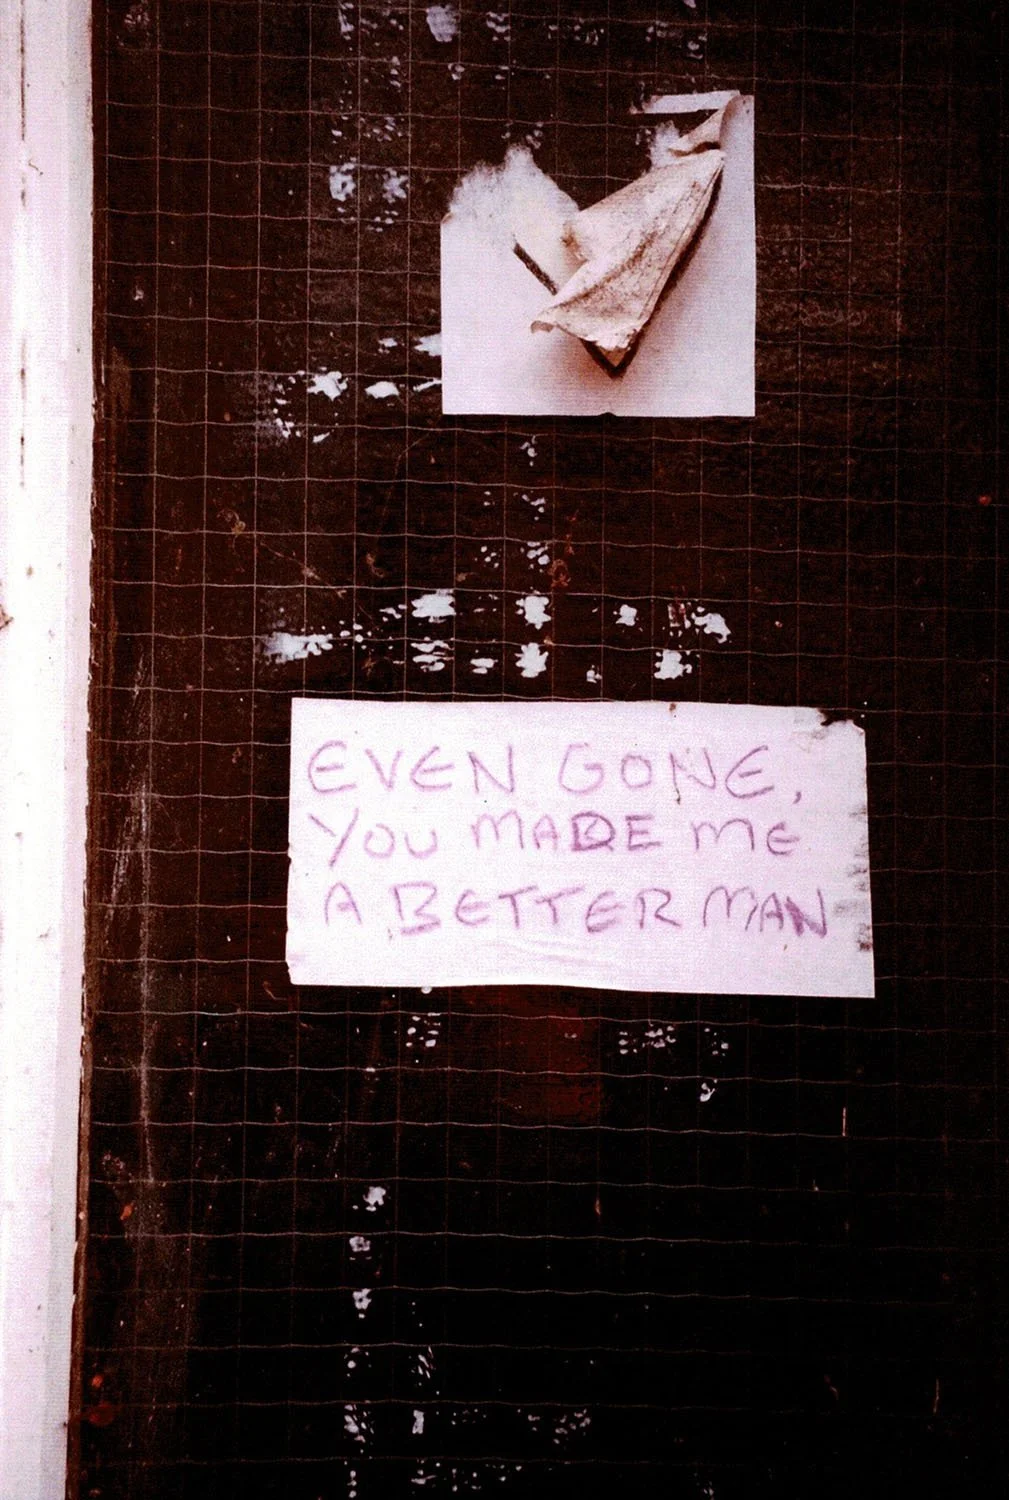 EVEN GONE,
YOU MADE ME
A BETTER MAN